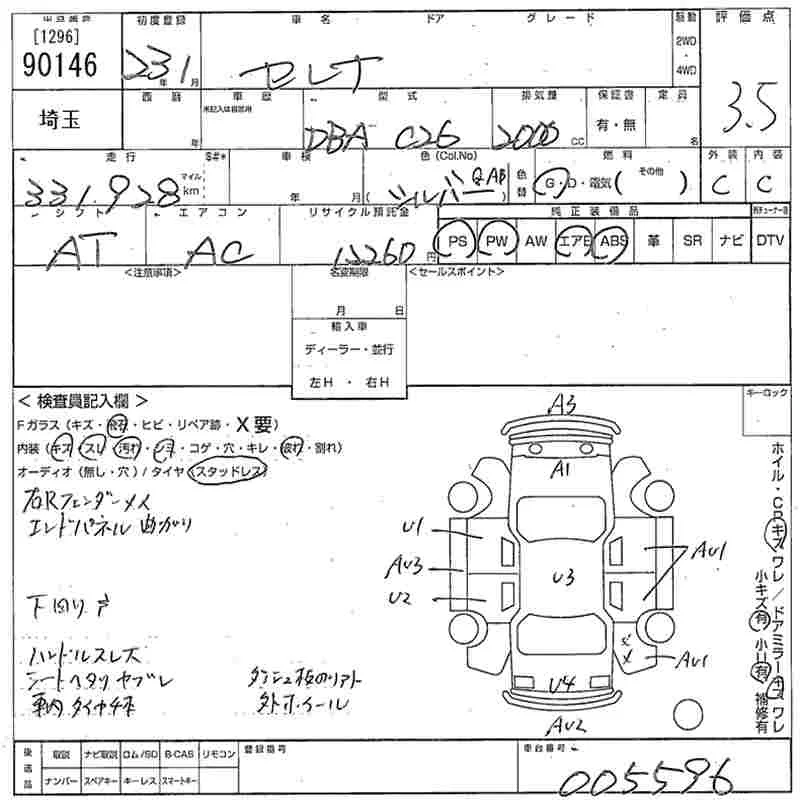 出品番号 初度登録 車名 ドア グレード 駆動 評価点
[1296]
90146 23年1月 セレナ 2WD・4WD 3.5
埼玉 西暦 年 車歴 未記入は自家用 型式 排気量 保証書 定員
DBA C26 2000cc 有・無 名
走行 $#* 車検 色(Col.No) 色替 燃料 その他 外装 内装
331,928 マイル km 年 月 シルバー(QAB) G・D・電気( ) C C
シフト エアコン リサイクル預託金 純正装備品
AT AC 12260円 PS PW AW エアB ABS 革 SR ナビ DTV
<注意事項> 名変期限 <セールスポイント>
月 日
輸入車
ディーラー・並行
左H・右H
<検査員記入欄> キーロック
Fガラス(キズ・飛石・ヒビ・リペア跡・X要)
内装(キズ・スレ・汚れ・シミ・コゲ・穴・キレ・破れ・割れ)
オーディオ(無し・穴)/タイヤ(スタッドレス)
右Rフェンダーメス
エンドパネル曲がり
下回りサ
ハンドルスレ大
シートヘタリヤブレ
車内タイヤ4本
外ホイール
A3
A1
U1
AU3
U2
U3
AU1
AU1
U4
AU2
ホイル・CRキズ ワレ/ドアミラーキズ ワレ
小キズ有 小U有 補修有
後送品 取説 ナビ取説 ロム/SD B-CAS リモコン 登録番号 車台番号
ナンバー スペアキー キーレス スマートキー
005596